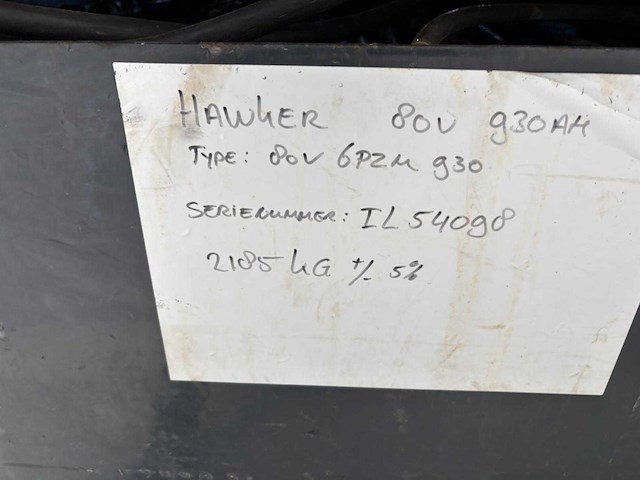 HAWKER 80V 930AH
TYPE: 80V 6PZM 930
SERIENUMMER: IL54098
2185 KG +/- 5%